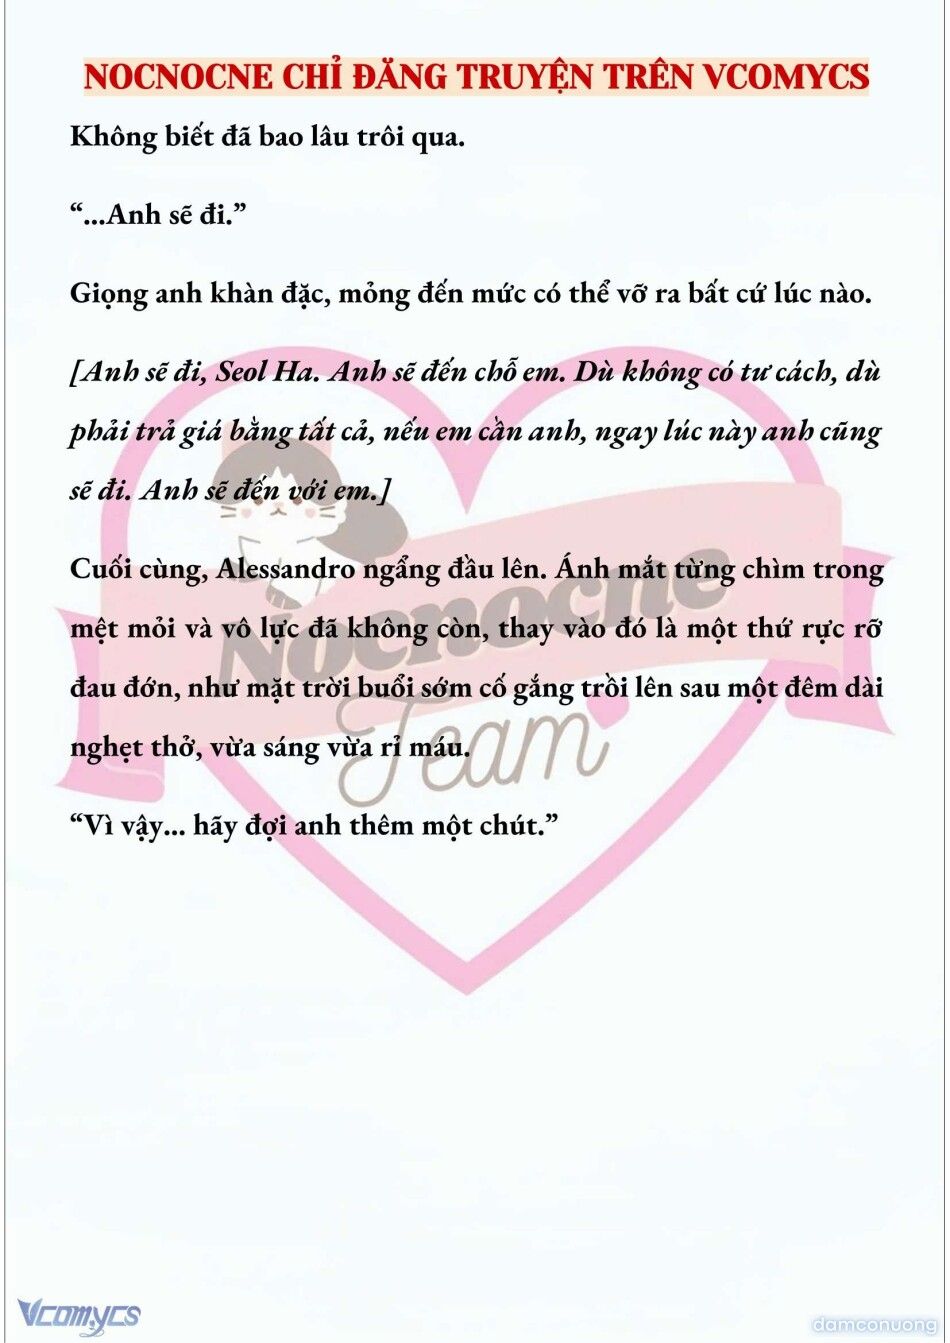 NOCNOCNE CHỈ ĐĂNG TRUYỆN TRÊN VCOMYCS
Không biết đã bao lâu trôi qua.
“...Anh sẽ đi.”
Giọng anh khàn đặc, mỏng đến mức có thể vỡ ra bất cứ lúc nào.
[Anh sẽ đi, Seol Ha. Anh sẽ đến chỗ em. Dù không có tư cách, dù
phải trả giá bằng tất cả, nếu em cần anh, ngay lúc này anh cũng
sẽ đi. Anh sẽ đến với em.]
Cuối cùng, Alessandro ngẩng đầu lên. Ánh mắt từng chìm trong
mệt mỏi và vô lực đã không còn, thay vào đó là một thứ rực rỡ
đau đớn, như mặt trời buổi sớm cố gắng trồi lên sau một đêm dài
nghẹt thở, vừa sáng vừa rỉ máu.
“Vì vậy... hãy đợi anh thêm một chút.”
Nocnocne
Team
Vcomycs
damconuong